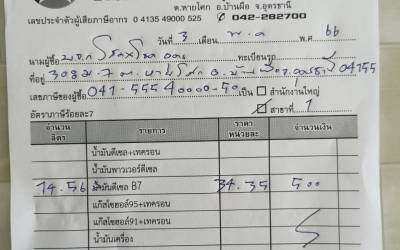 ต.หายโศก อ.บ้านผือ จ.อุดรธานี
เลขประจำตัวผู้เสียภาษีอากร 0 4135 49000 525 042-282700
วันที่ 3 เดือน พ.ค พ.ศ 66
นามผู้ซื้อ ทะเบียนรถ
ที่อยู่ 308 ม.7 ต.หายโศก อ.
เลขภาษีของผู้ซื้อ 041-5554 0000-50 เป็น สำนักงานใหญ่
อัตราภาษีร้อยละ7 สาขาที่ 1
จำนวนลิตร รายการ ราคาหน่วยละ จำนวนเงิน
น้ำมันดีเซล+เทครอน
น้ำมันพาวเวอร์ดีเซล
14.56 น้ำมันดีเซล B7 34.35 500
แก๊สโซฮอล์95+เทครอน
แก๊สโซฮอล์91+เทครอน
น้ำมันเครื่อง